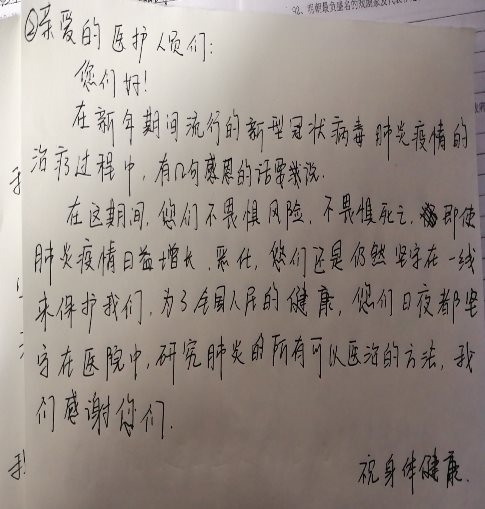 92、
②亲爱的医护人员们：
您们好！
在新年期间流行的新型冠状病毒肺炎疫情的
治疗过程中，有几句感恩的话要我说.
在这期间，您们不畏惧风险，不畏惧死亡，即使
肺炎疫情日益增长、恶化，您们还是仍然坚守在一线
来保护我们，为了全国人民的健康，您们日夜都坚
守在医院中，研究肺炎的所有可以医治的方法，我
们感谢您们.
祝身体健康.